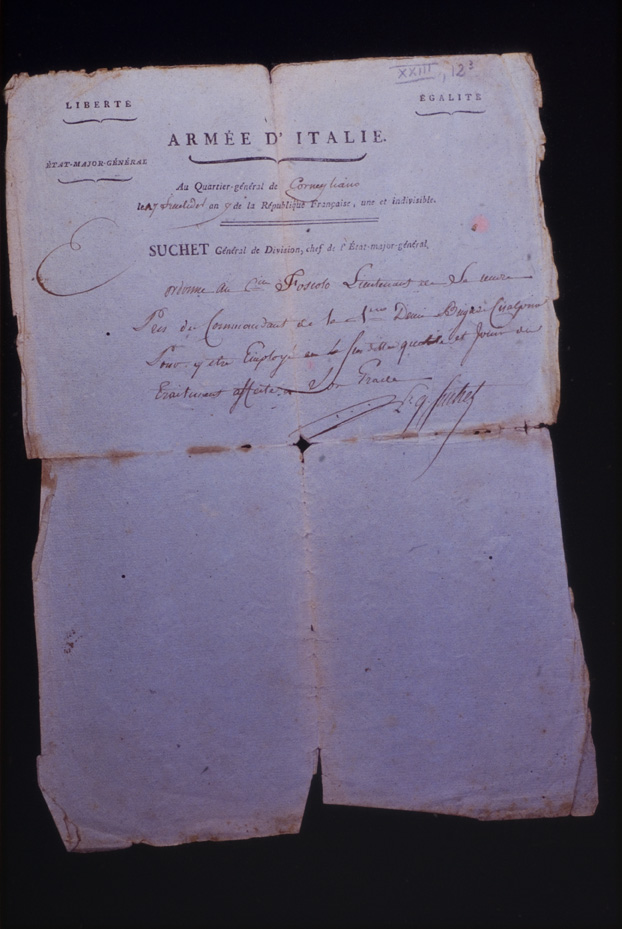 XXIII, 12³
LIBERTÉ
ÉGALITÉ
ARMÉE D'ITALIE.
ÉTAT-MAJOR-GÉNÉRAL
Au Quartier-général de Cornegliano
le 17 fructidor an 7 de la République Française, une et indivisible.
SUCHET Général de Division, chef de l'État-major-général,
ordonne au Cen Foscolo Lieutenant de se
Près du Commandant de la 1ere Demi Brigade Cisalpine
Pour y être Employé en la Susditte qualité et Jouir du
Traitement affecté a Son Grade
Suchet